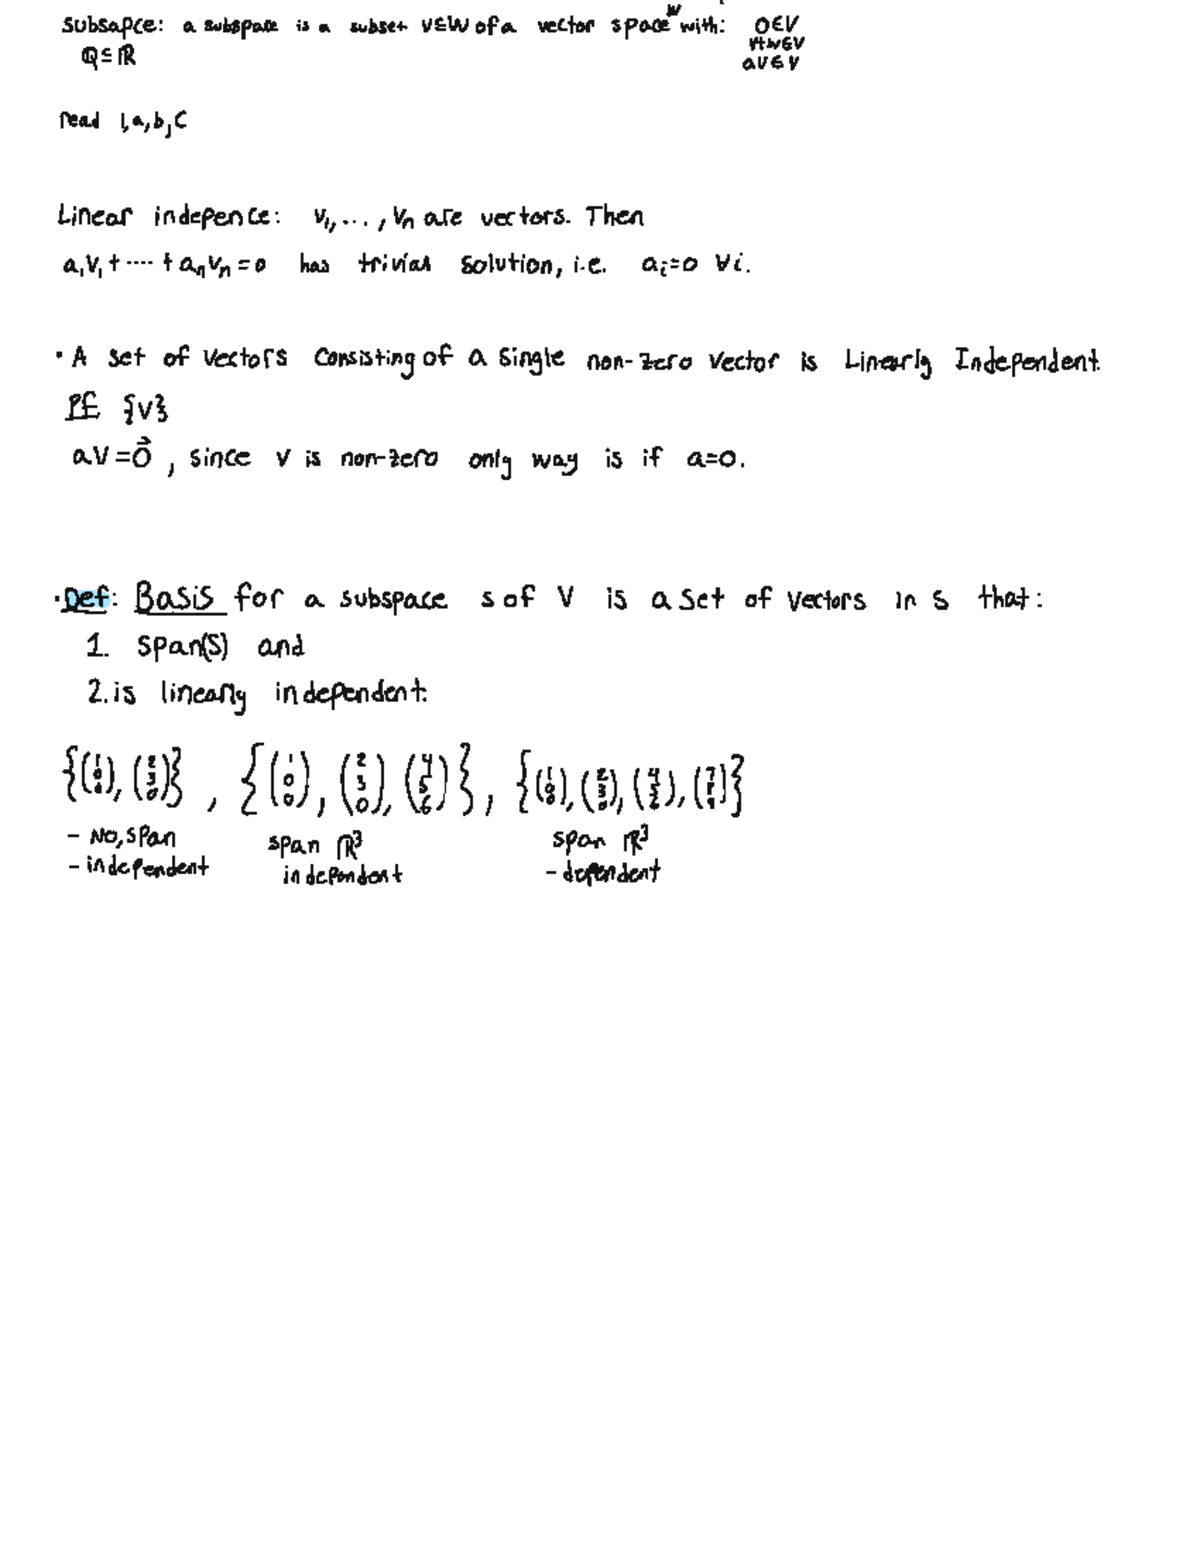 subsapce: a subspace is a subset V⊆W of a vector space W with: 0∈V
V+W∈V
Q⊆ℝ
aV∈V
read 1,a,b,c
Linear indepence: v₁,..., vₙ are vectors. Then
a₁v₁+····+aₙvₙ=0 has trivial solution, i.e. aᵢ=0 ∀i.
· A set of vectors consisting of a single non-zero vector is Linearly Independent.
PF {v}
av=0⃗, since v is non-zero only way is if a=0.
· Def: Basis for a subspace s of V is a set of vectors in s that:
1. span(S) and
2. is linearly independent.
{(1 0 0), (2 3 0)}, {(1 0 0), (2 3 0), (4 5 6)}, {(1 0 0), (2 3 0), (4 5 6), (7 8 9)}
- No, span
span ℝ³
span ℝ³
- independent
independent
- dependent